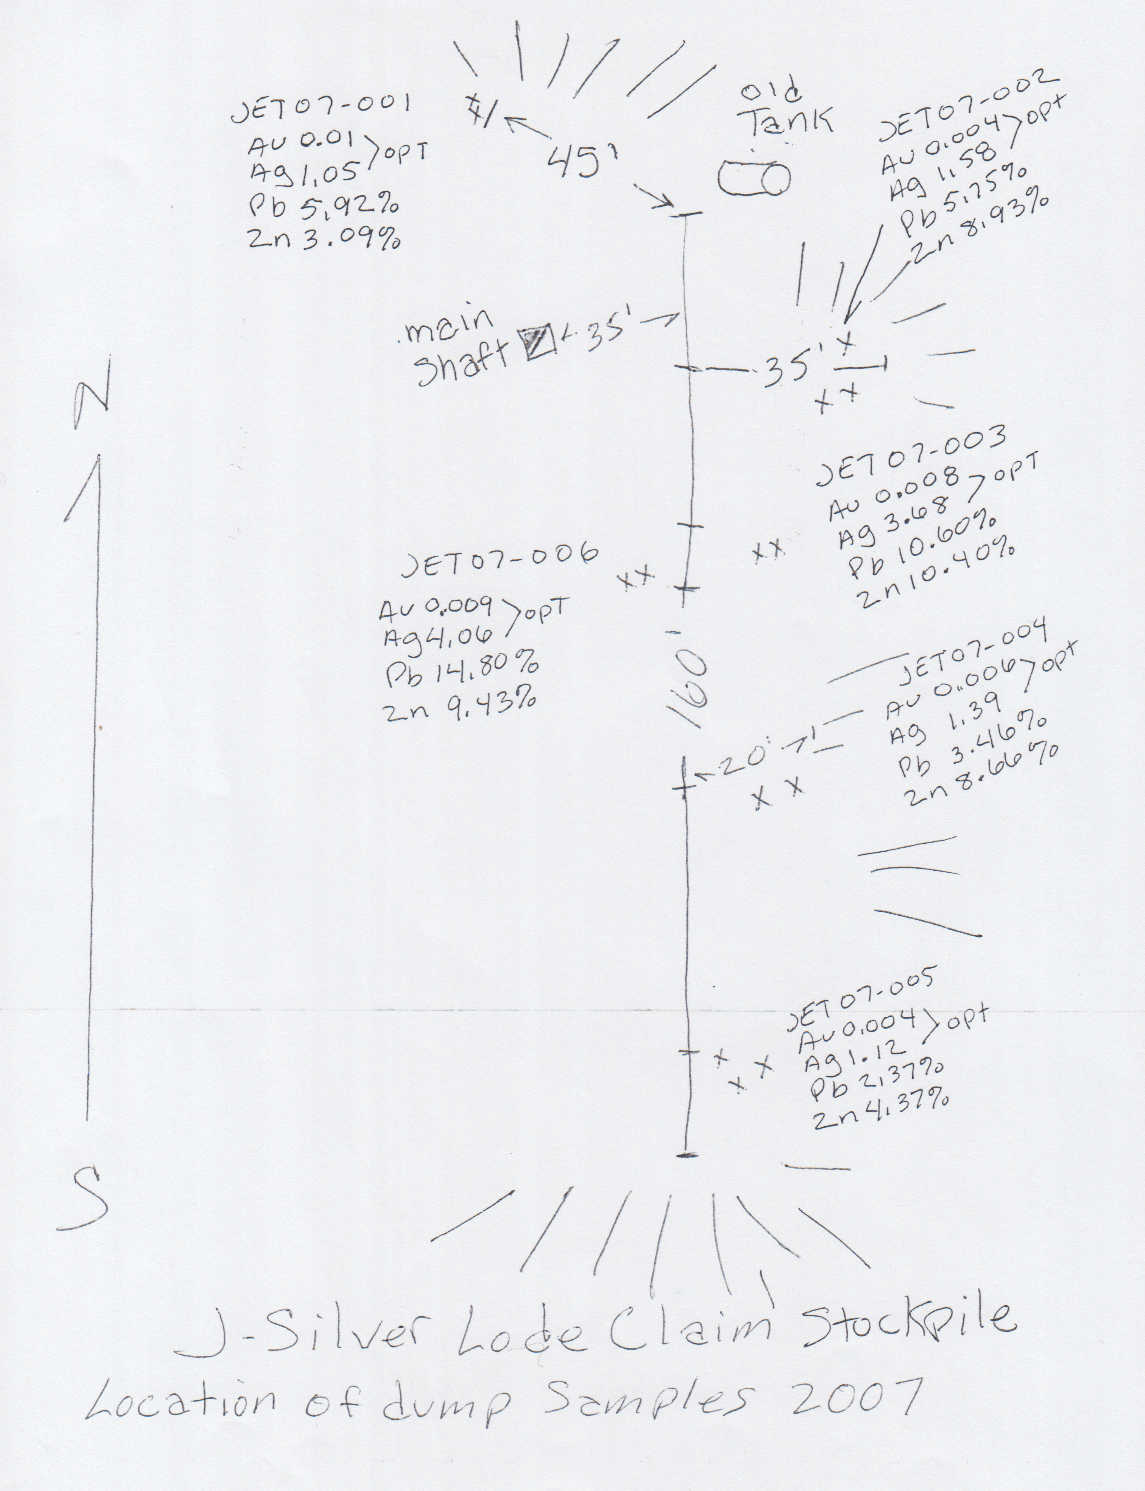 JET07-001
Au 0.01 > OPT
Ag 1.05
Pb 5.92%
Zn 3.09%
45'
old
Tank
JET07-002
Au 0.004 > opt
Ag 1.58
Pb 5.75%
Zn 8.93%
main
shaft
35'
35'
N
JET07-003
Au 0.008 > OPT
Ag 3.68
Pb 10.60%
Zn 10.40%
JET07-006
Au 0.009 > OPT
Ag 4.06
Pb 14.80%
Zn 9.43%
160'
JET07-004
Au 0.006 > OPT
Ag 1.39
Pb 3.46%
Zn 8.66%
20'
JET07-005
Au 0.004 > OPT
Ag 1.12
Pb 2.37%
Zn 4.37%
S
J-Silver Lode Claim Stockpile
Location of dump Samples 2007